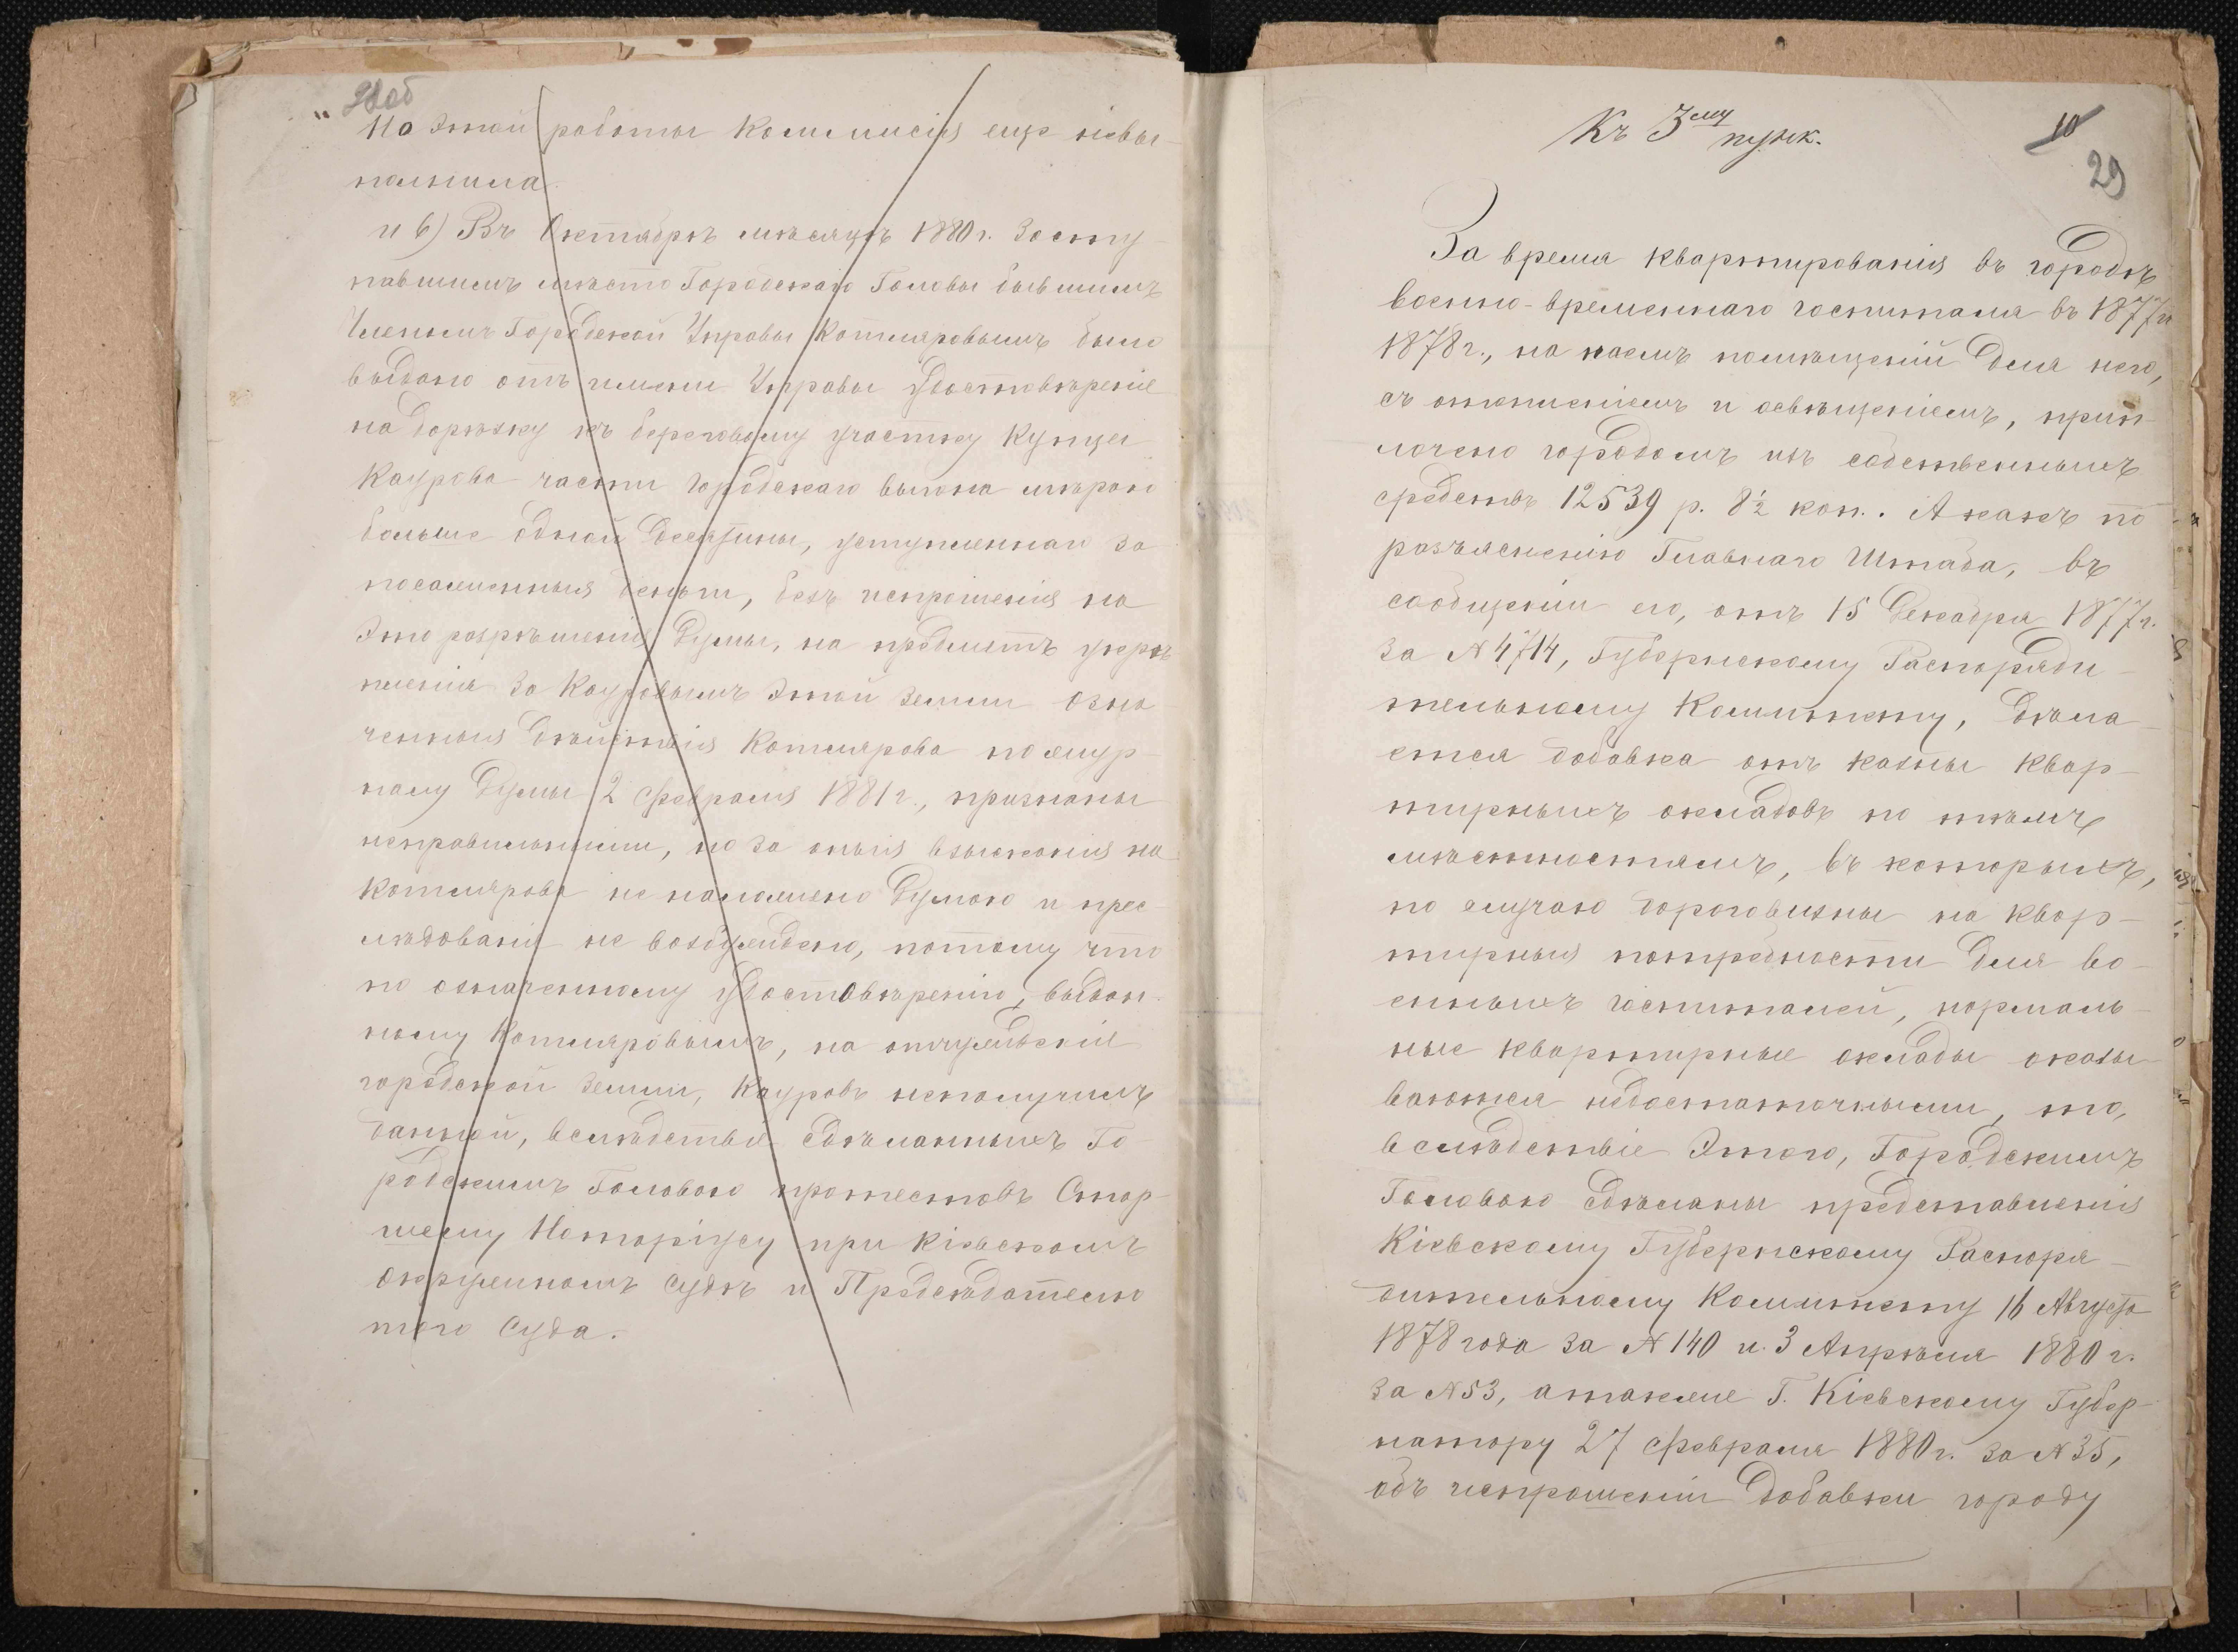 28об
„Но этой работы Коммисія еще невы-
полнила.
и в) Въ Октябрѣ мѣсяцѣ 1880 г. Засту-
павшимъ мѣсто Городскаго Головы бывшимъ
Членомъ Городской Управы Котляровымъ было
выдано отъ имени Управы удостовѣреніе
на дорѣзку къ береговому участку Купца
Каурова части городскаго выгона мѣрою
больше одной десятины, уступленнаго за
посаженныя деньги, безъ испрошенія на
это разрѣшенія Думы, на предметъ укрѣ-
пленія за Кауровымъ этой земли. Озна-
ченныя дѣйствія Котлярова по жур-
налу Думы 2 Февраля 1881 г., признаны
неправильными, но за оныя взысканія на
Котлярова не наложено Думою и прес-
лѣдованія не возбуждено, потому что
по означенному удостовѣренію, выдан-
ному Котляровымъ, на отчужденіе
городской земли, Кауровъ неполучилъ
данной, вслѣдствіе сдѣланныхъ Го-
родскимъ Головою протестовъ Стар-
шему Нотаріусу при Кіевскомъ
Окружномъ Судѣ и Предсѣдателю
того Суда.
Къ 3му пунк.
10
29
За время квартированія въ городѣ
военно-временнаго госпиталя въ 1877 и
1878 г., на наемъ помѣщеній для него,
съ отопленіемъ и освѣщеніемъ, прип-
лочено городомъ изъ собственныхъ
средствъ 12539 р. 8½ коп.. А какъ по
разъясненію Главнаго Штаба, въ
сообщеніи его, отъ 15 Декабря 1877 г.
за № 4714, Губернскому Распоряди-
тельному Комитету, дѣла-
ется добавка отъ казны квар-
тирныхъ окладовъ по тѣмъ
мѣстностямъ, въ которыхъ,
по случаю дороговизны на квар-
тирныя потребности для во-
енныхъ госпиталей, нормаль-
ные квартирные оклады оказы-
ваются недостаточными, то,
вслѣдствіе этого, Городскимъ
Головою сдѣланы представленія
Кіевскому Губернскому Распоря-
дительному Комитету 16 Августа
1878 года за № 140 и 3 Апрѣля 1880 г.
за № 53, атакже Г. Кіевскому Губер-
натору 27 Февраля 1880 г. за № 35,
объ испрошеніи добавки городу